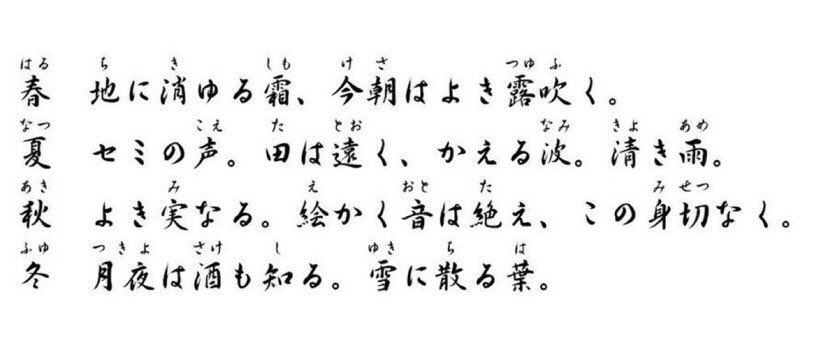 はる ち き しも けさ つゆ ふ
春 地に消ゆる霜、今朝はよき露吹く。
なつ こえ た とお なみ きよ あめ
夏 セミの声。田は遠く、かえる波。清き雨。
あき み え おと た み せつ
秋 よき実なる。絵かく音は絶え、この身切なく。
ふゆ つきよ さけ し ゆき ち は
冬 月夜は酒も知る。雪に散る葉。